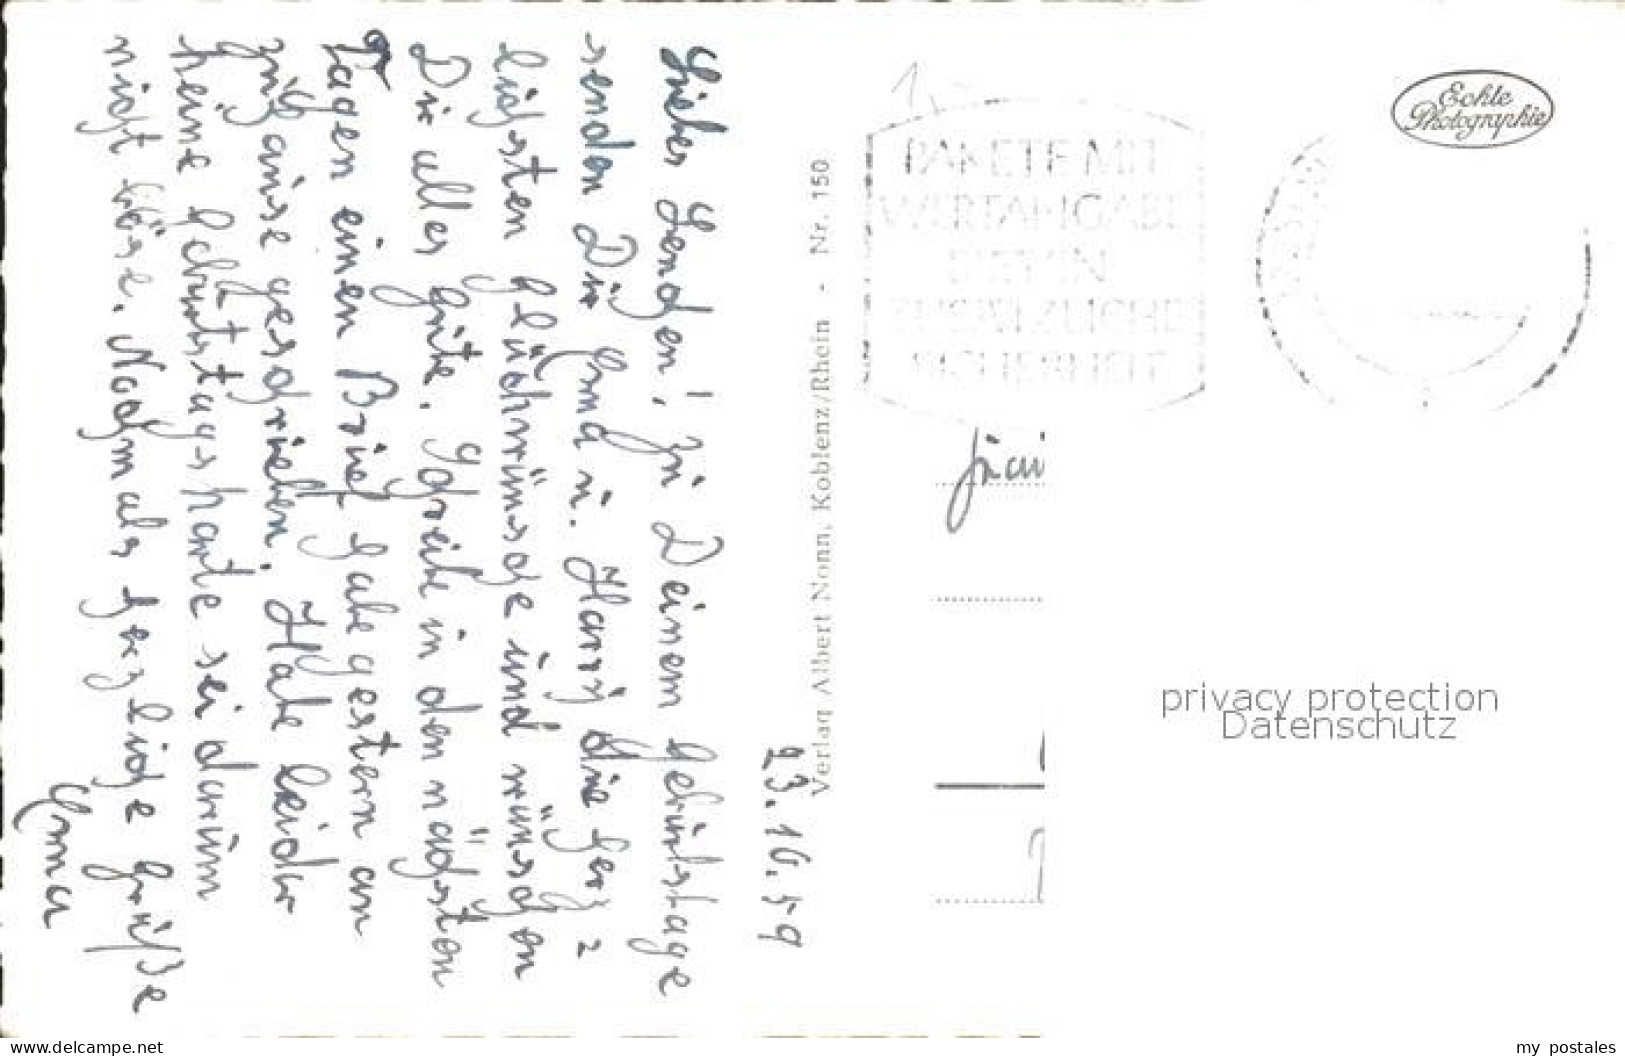 23.10.59
Lieber ! Zu Deinem Geburtstage
senden Dir Erna u. Harry die herz=
lichsten Glückwünsche und wünschen
Dir alles Gute. Schreibe in den nächsten
Tagen einen Brief habe gestern an
geschrieben. Habe leider
keine Geburtstagskarte sei darum
nicht böse. Nochmals herzliche Grüße
Erna
Verlag Albert Nonn, Koblenz/Rhein - Nr. 150
Echte
Photographie
PAKETE MIT
WERTANGABE
BIETEN
ZUSÄTZLICHE
SICHERHEIT
privacy protection
Datenschutz
www.delcampe.net
my_postales